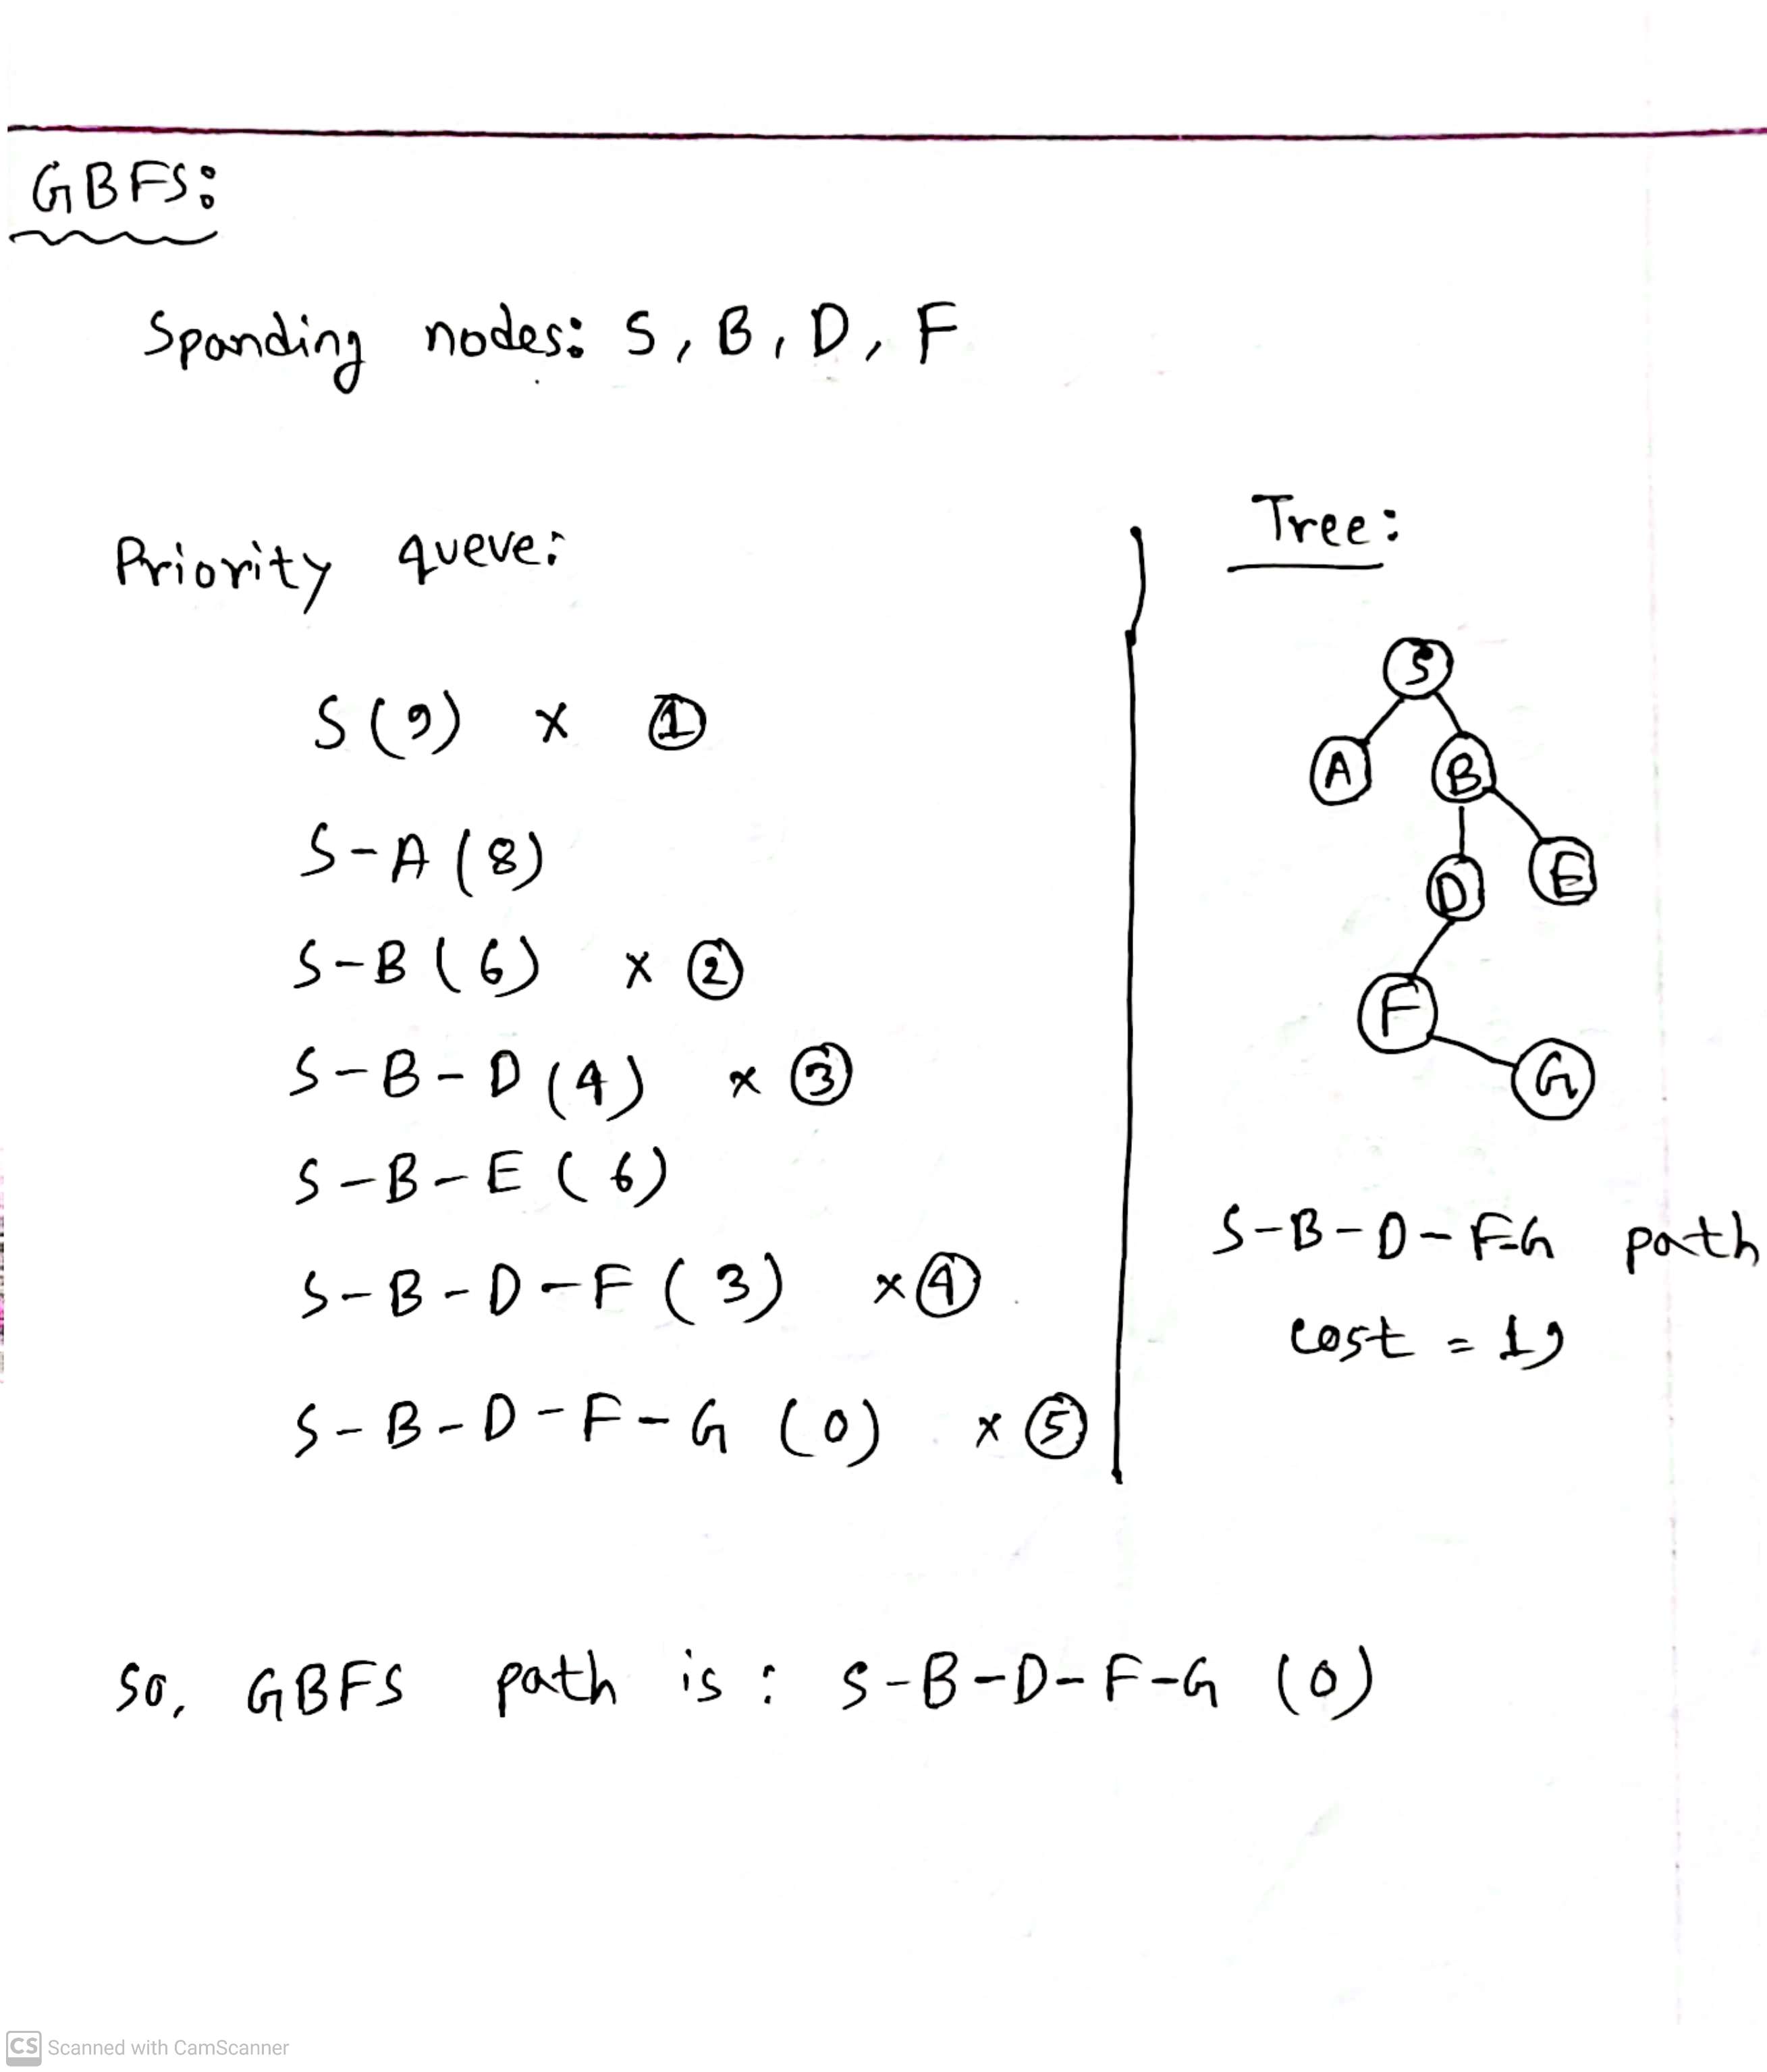 GBFS:
Spanding nodes: S, B, D, F
Priority queue:
S(9) x ①
S-A(8)
S-B(6) x ②
S-B-D(4) x ③
S-B-E(6)
S-B-D-F(3) x ④
S-B-D-F-G (0) x ⑤
Tree:
S
A B
D E
F
G
S-B-D-F-G path
cost = 19
So, GBFS path is: S-B-D-F-G (0)
CS Scanned with CamScanner